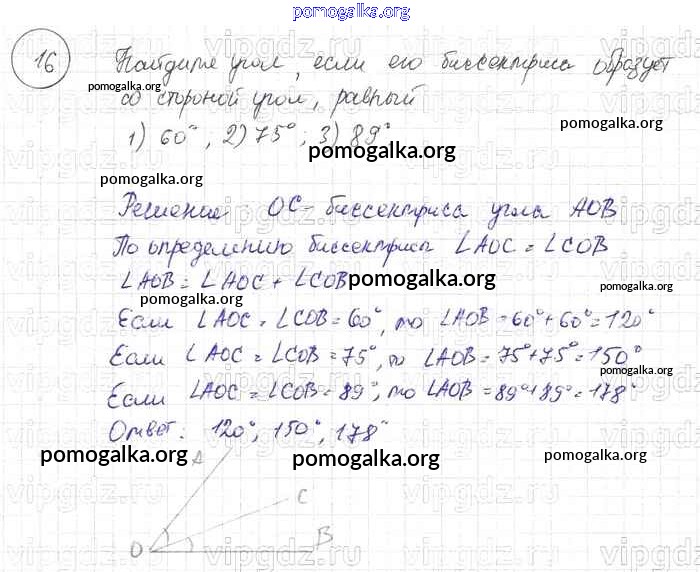 pomogalka.org
16
Найдите угол, если его биссектриса образует
со стороной угол, равный
1) 60°, 2) 75°; 3) 89°
pomogalka.org
pomogalka.org
pomogalka.org
pomogalka.org
Решение OC - биссектриса угла AOB
По определению биссектрис ∠AOC = ∠COB
∠AOB = ∠AOC + ∠COB
pomogalka.org
pomogalka.org
pomogalka.org
Если ∠AOC = ∠COB = 60°, то ∠AOB = 60° + 60° = 120°
Если ∠AOC = ∠COB = 75°, то ∠AOB = 75° + 75° = 150°
pomogalka.org
Если ∠AOC = ∠COB = 89°, то ∠AOB = 89° + 89° = 178°
Ответ: 120°, 150°, 178°
pomogalka.org
pomogalka.org
pomogalka.org
A
C
O
B
vipgdz.ru